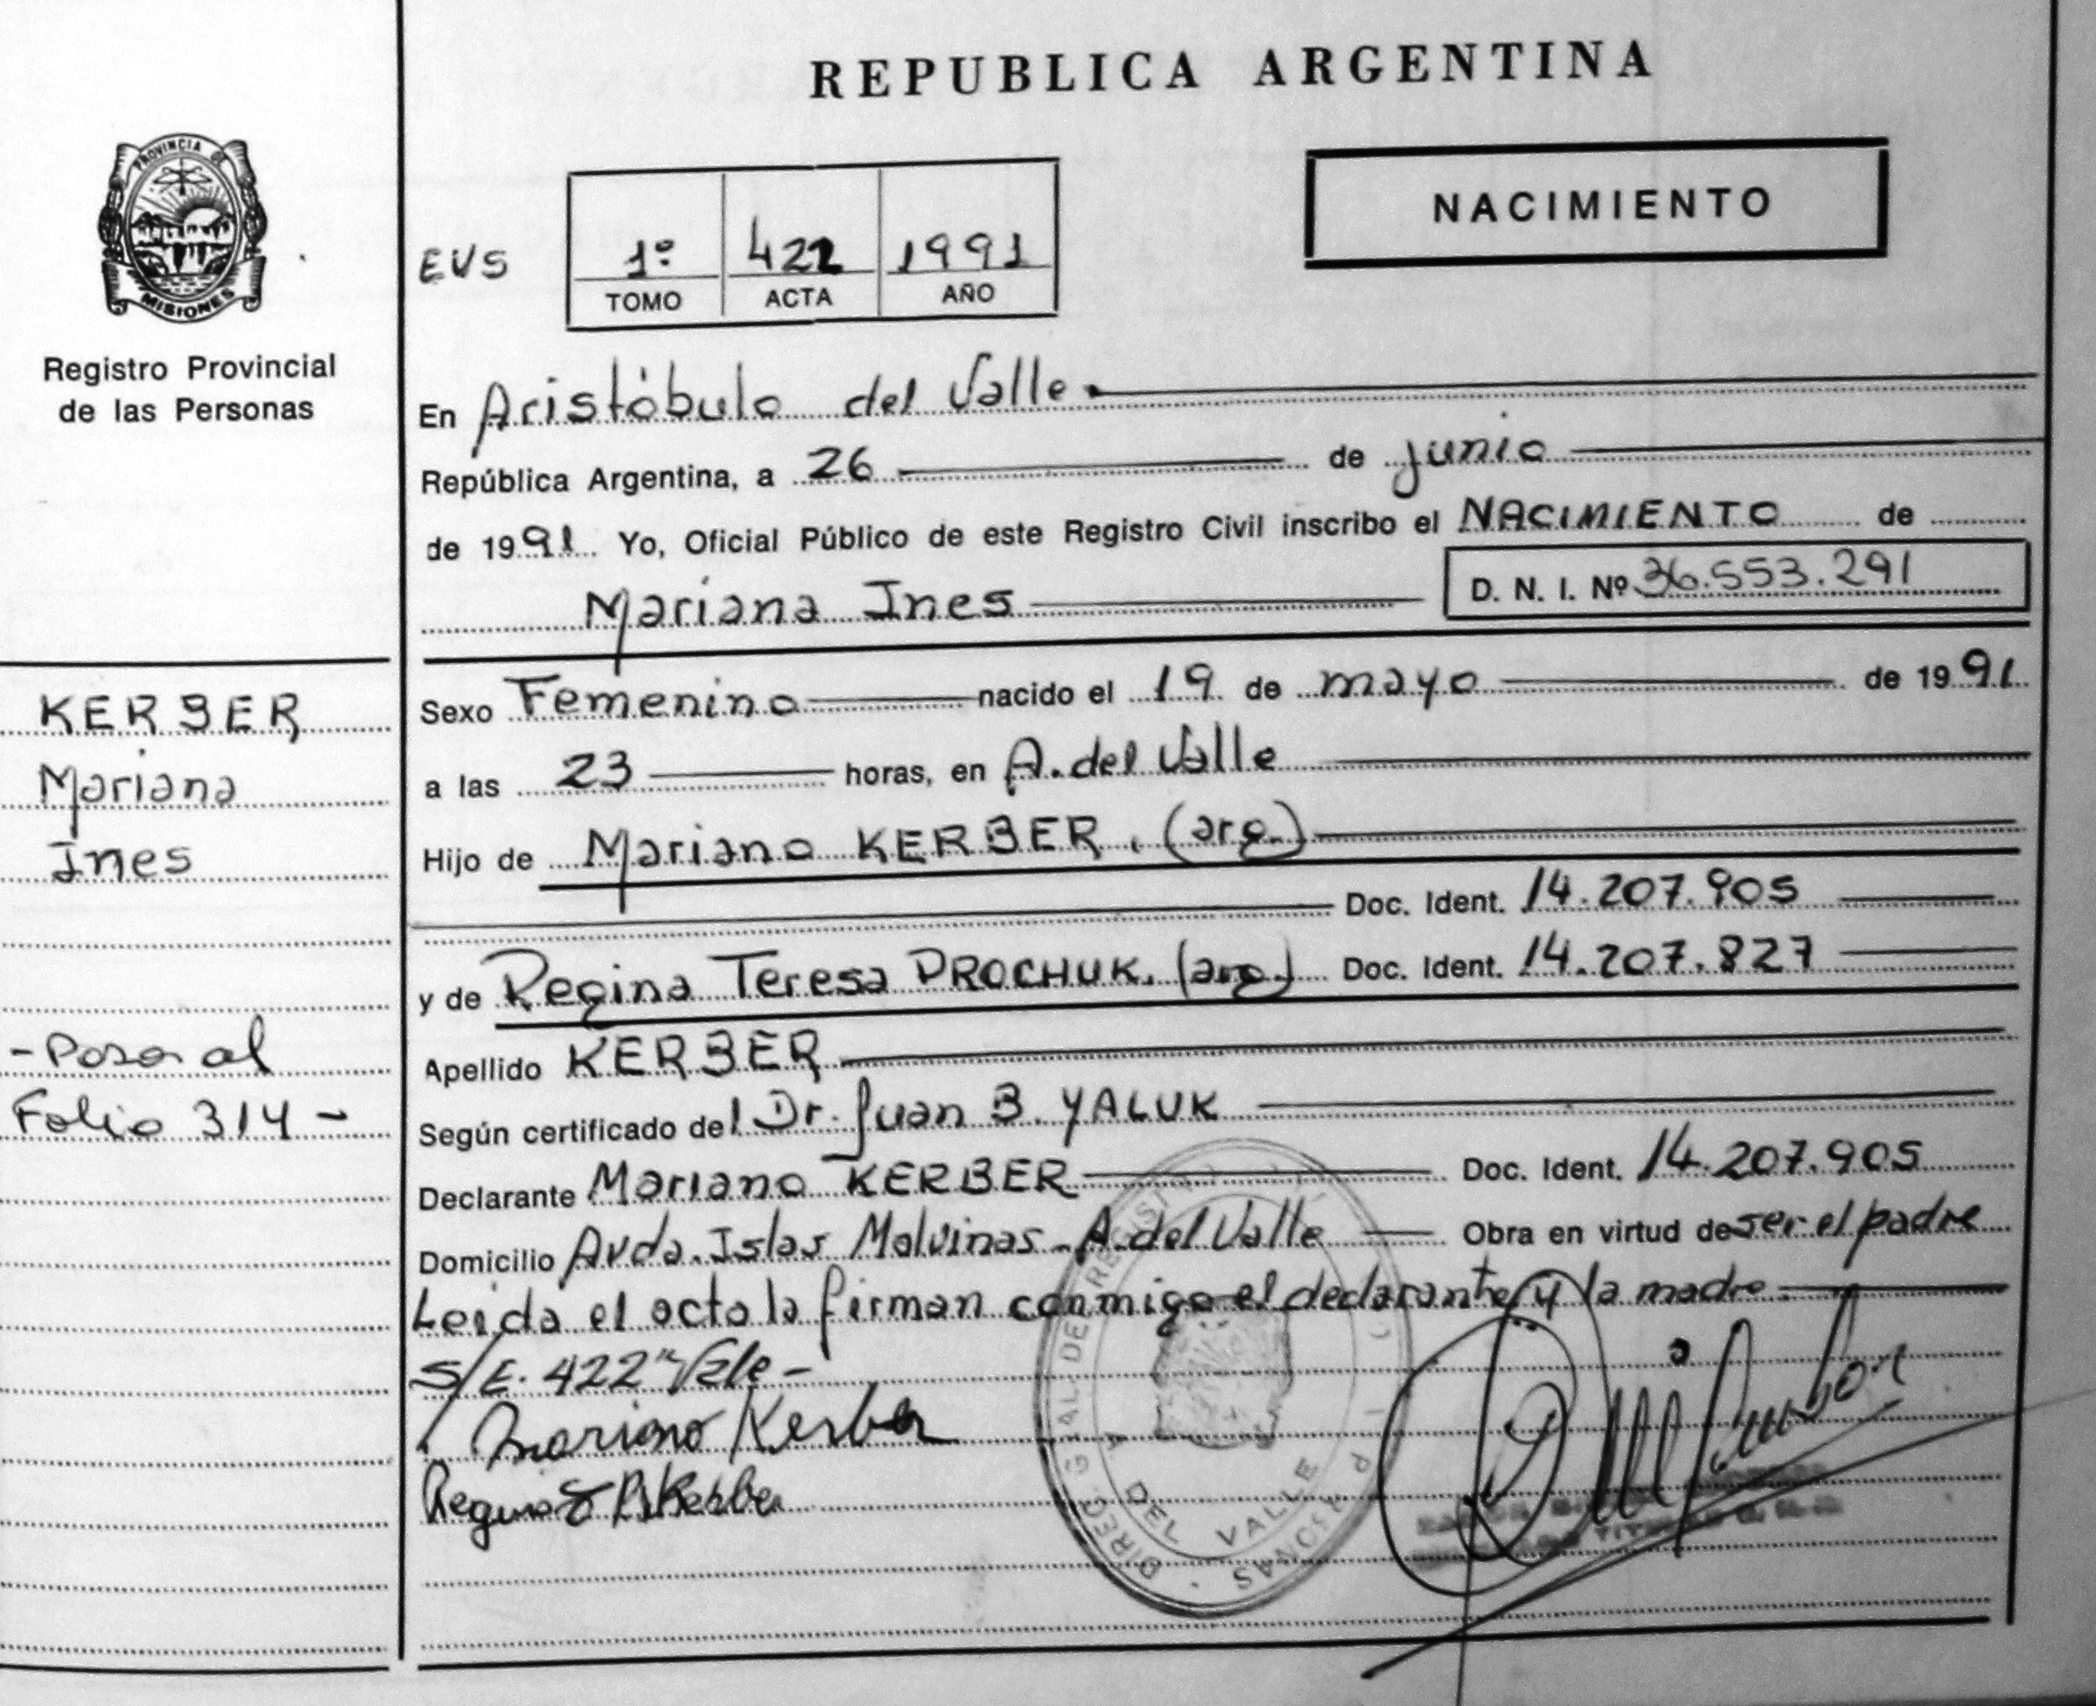 REPUBLICA ARGENTINA
PROVINCIA DE
MISIONES
Registro Provincial
de las Personas
NACIMIENTO
EVS
1º 422 1991
TOMO ACTA AÑO
En Aristóbulo del Valle
República Argentina, a 26 de junio
de 1991 Yo, Oficial Público de este Registro Civil inscribo el NACIMIENTO de
Mariana Ines D. N. I. Nº 36.553.291
KERBER
Mariana
Ines
- Pasa al
Folio 314 -
Sexo Femenino nacido el 19 de mayo de 1991
a las 23 horas, en A. del Valle
Hijo de Mariano KERBER. (arg.)
Doc. Ident. 14.207.905
y de Regina Teresa PROCHUK. (arg.) Doc. Ident. 14.207.827
Apellido KERBER
Según certificado del Dr. Juan B. YALUK
Declarante Mariano KERBER Doc. Ident. 14.207.905
Domicilio Avda. Islas Malvinas - A. del Valle Obra en virtud de ser el padre
Leida el acta la firman conmigo el declarante y la madre.
S/E. 422" Vale -
Mariano Kerber
Regina Kerber
A DEL VALLE